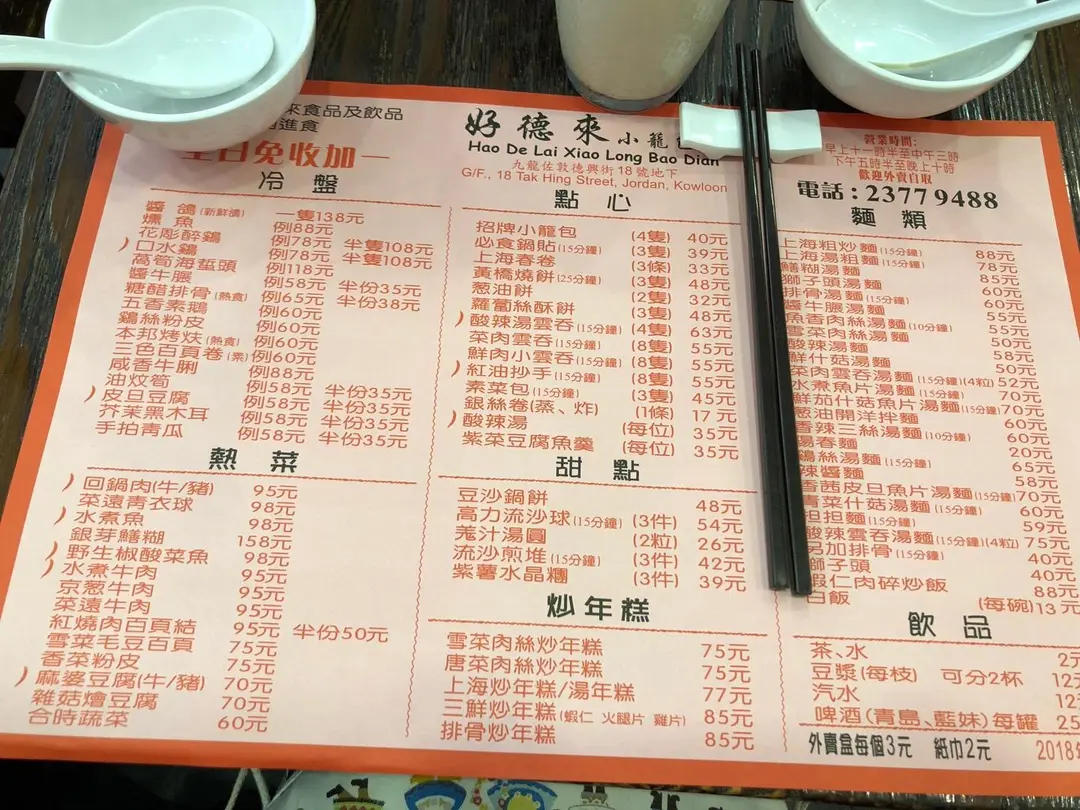 來食品及飲品
進食
全日免收加一
好德來小籠包
Hao De Lai Xiao Long Bao Dian
九龍佐敦德興街18號地下
G/F., 18 Tak Hing Street, Jordan, Kowloon
營業時間:
早上十一時半至中午三時
下午五時半至晚上十時
歡迎外賣自取
電話:2377 9488
冷盤
醬鴿(新鮮鴿) 一隻138元
燻魚 例88元
花彫醉鷄 例78元 半隻108元
)口水鷄 例78元 半隻108元
萵筍海蜇頭 例118元
醬牛腱 例58元 半份35元
糖醋排骨(熱食) 例65元 半份38元
五香素鵝 例60元
鷄絲粉皮 例60元
本邦烤麩(熱食) 例60元
三色百頁卷(素) 例60元
咸香牛脷 例88元
油炆筍 例58元 半份35元
)皮旦豆腐 例58元 半份35元
芥茉黑木耳 例58元 半份35元
手拍青瓜 例58元 半份35元
熱菜
)回鍋肉(牛/豬) 95元
菜遠青衣球 98元
)水煮魚 98元
銀芽鱔糊 158元
)野生椒酸菜魚 98元
)水煮牛肉 95元
京葱牛肉 95元
菜遠牛肉 95元
紅燒肉百頁結 95元 半份50元
雪菜毛豆百頁 75元
香菜粉皮 75元
)麻婆豆腐(牛/豬) 70元
雜菇燴豆腐 70元
合時蔬菜 60元
點心
招牌小籠包 (4隻) 40元
必食鍋貼(15分鐘) (3隻) 39元
上海春卷 (3條) 33元
黃橋燒餅(25分鐘) (3隻) 48元
葱油餅 (2隻) 32元
蘿蔔絲酥餅 (3隻) 48元
)酸辣湯雲吞(15分鐘) (4隻) 63元
菜肉雲吞(15分鐘) (8隻) 55元
鮮肉小雲吞(15分鐘) (8隻) 55元
)紅油抄手(15分鐘) (8隻) 55元
素菜包(15分鐘) (3隻) 45元
銀絲卷(蒸、炸) (1條) 17元
)酸辣湯 (每位) 35元
紫菜豆腐魚羹 (每位) 35元
甜點
豆沙鍋餅 48元
高力流沙球(15分鐘) (3件) 54元
羗汁湯圓 (2粒) 26元
流沙煎堆(15分鐘) (3件) 42元
紫薯水晶糰 (3件) 39元
炒年糕
雪菜肉絲炒年糕 75元
唐菜肉絲炒年糕 75元
上海炒年糕/湯年糕 77元
三鮮炒年糕(蝦仁 火腿片 雞片) 85元
排骨炒年糕 85元
麵類
上海粗炒麵(15分鐘) 88元
上海湯粗麵(15分鐘) 78元
鱔糊湯麵 85元
獅子頭湯麵 60元
排骨湯麵(15分鐘) 60元
醬牛腱湯麵 55元
魚香肉絲湯麵(10分鐘) 55元
雪菜肉絲湯麵 50元
酸辣湯麵 58元
鮮什菇湯麵 50元
菜肉雲吞湯麵(15分鐘)(4粒) 52元
水煮魚片湯麵(15分鐘) 70元
鮮茄什菇魚片湯麵(15分鐘) 70元
葱油開洋拌麵 60元
香辣三絲湯麵(10分鐘) 60元
陽春麵 20元
鷄絲湯麵(15分鐘) 65元
辣醬麵 58元
香茜皮旦魚片湯麵(15分鐘) 70元
青菜什菇湯麵(15分鐘) 60元
担担麵(15分鐘) 59元
酸辣雲吞湯麵(15分鐘)(4粒) 75元
另加排骨(15分鐘) 40元
獅子頭 40元
蝦仁肉碎炒飯 88元
白飯 (每碗) 13元
飲品
茶、水 2元
豆漿(每枝) 可分2杯 12元
汽水 12
啤酒(青島、藍妹)每罐 25
外賣盒每個3元 紙巾2元 2018